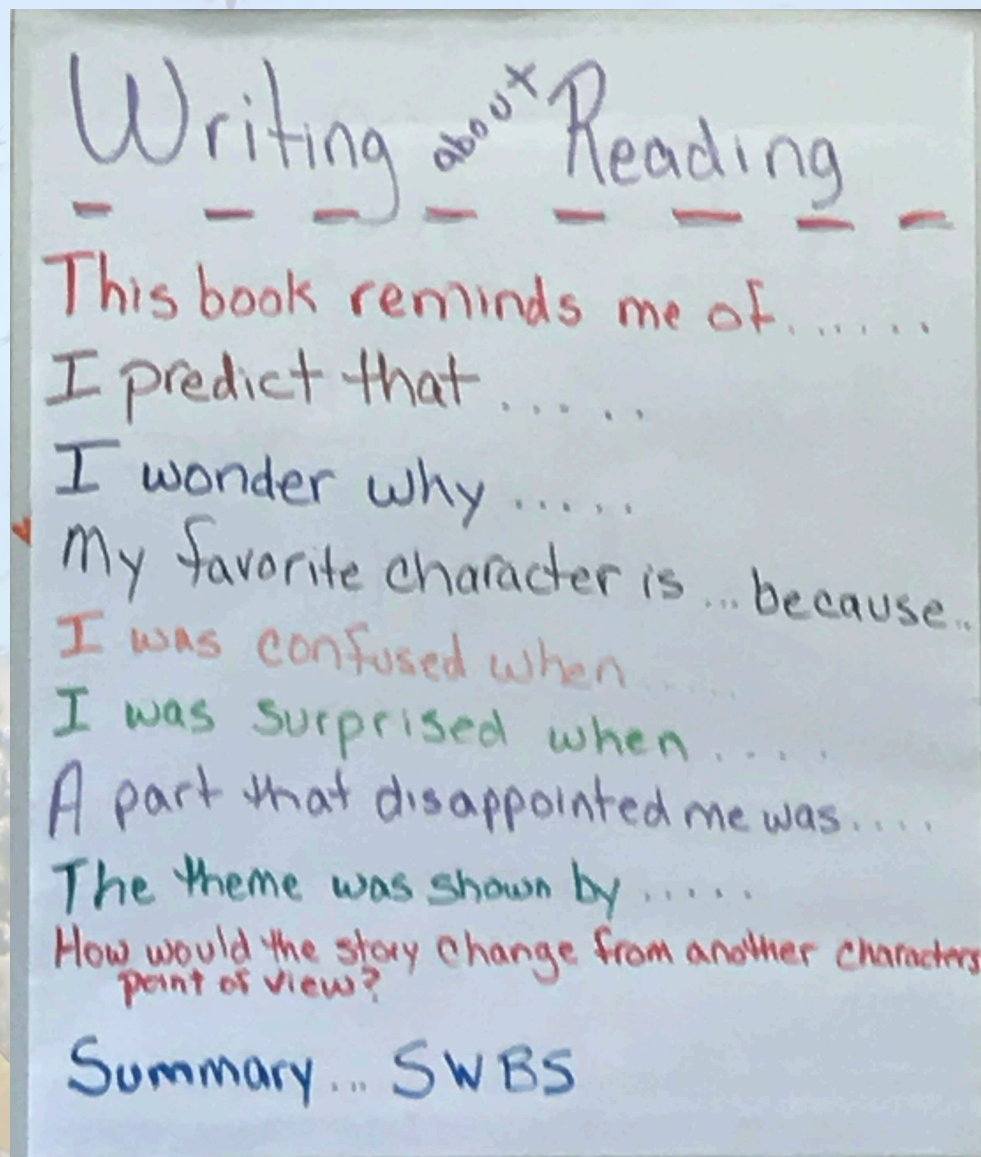 Writing about Reading
This book reminds me of.......
I predict that.....
I wonder why.....
My favorite character is...because..
I was confused when.....
I was surprised when....
A part that disappointed me was....
The theme was shown by.....
How would the story change from another characters
point of view?
Summary... SWBS